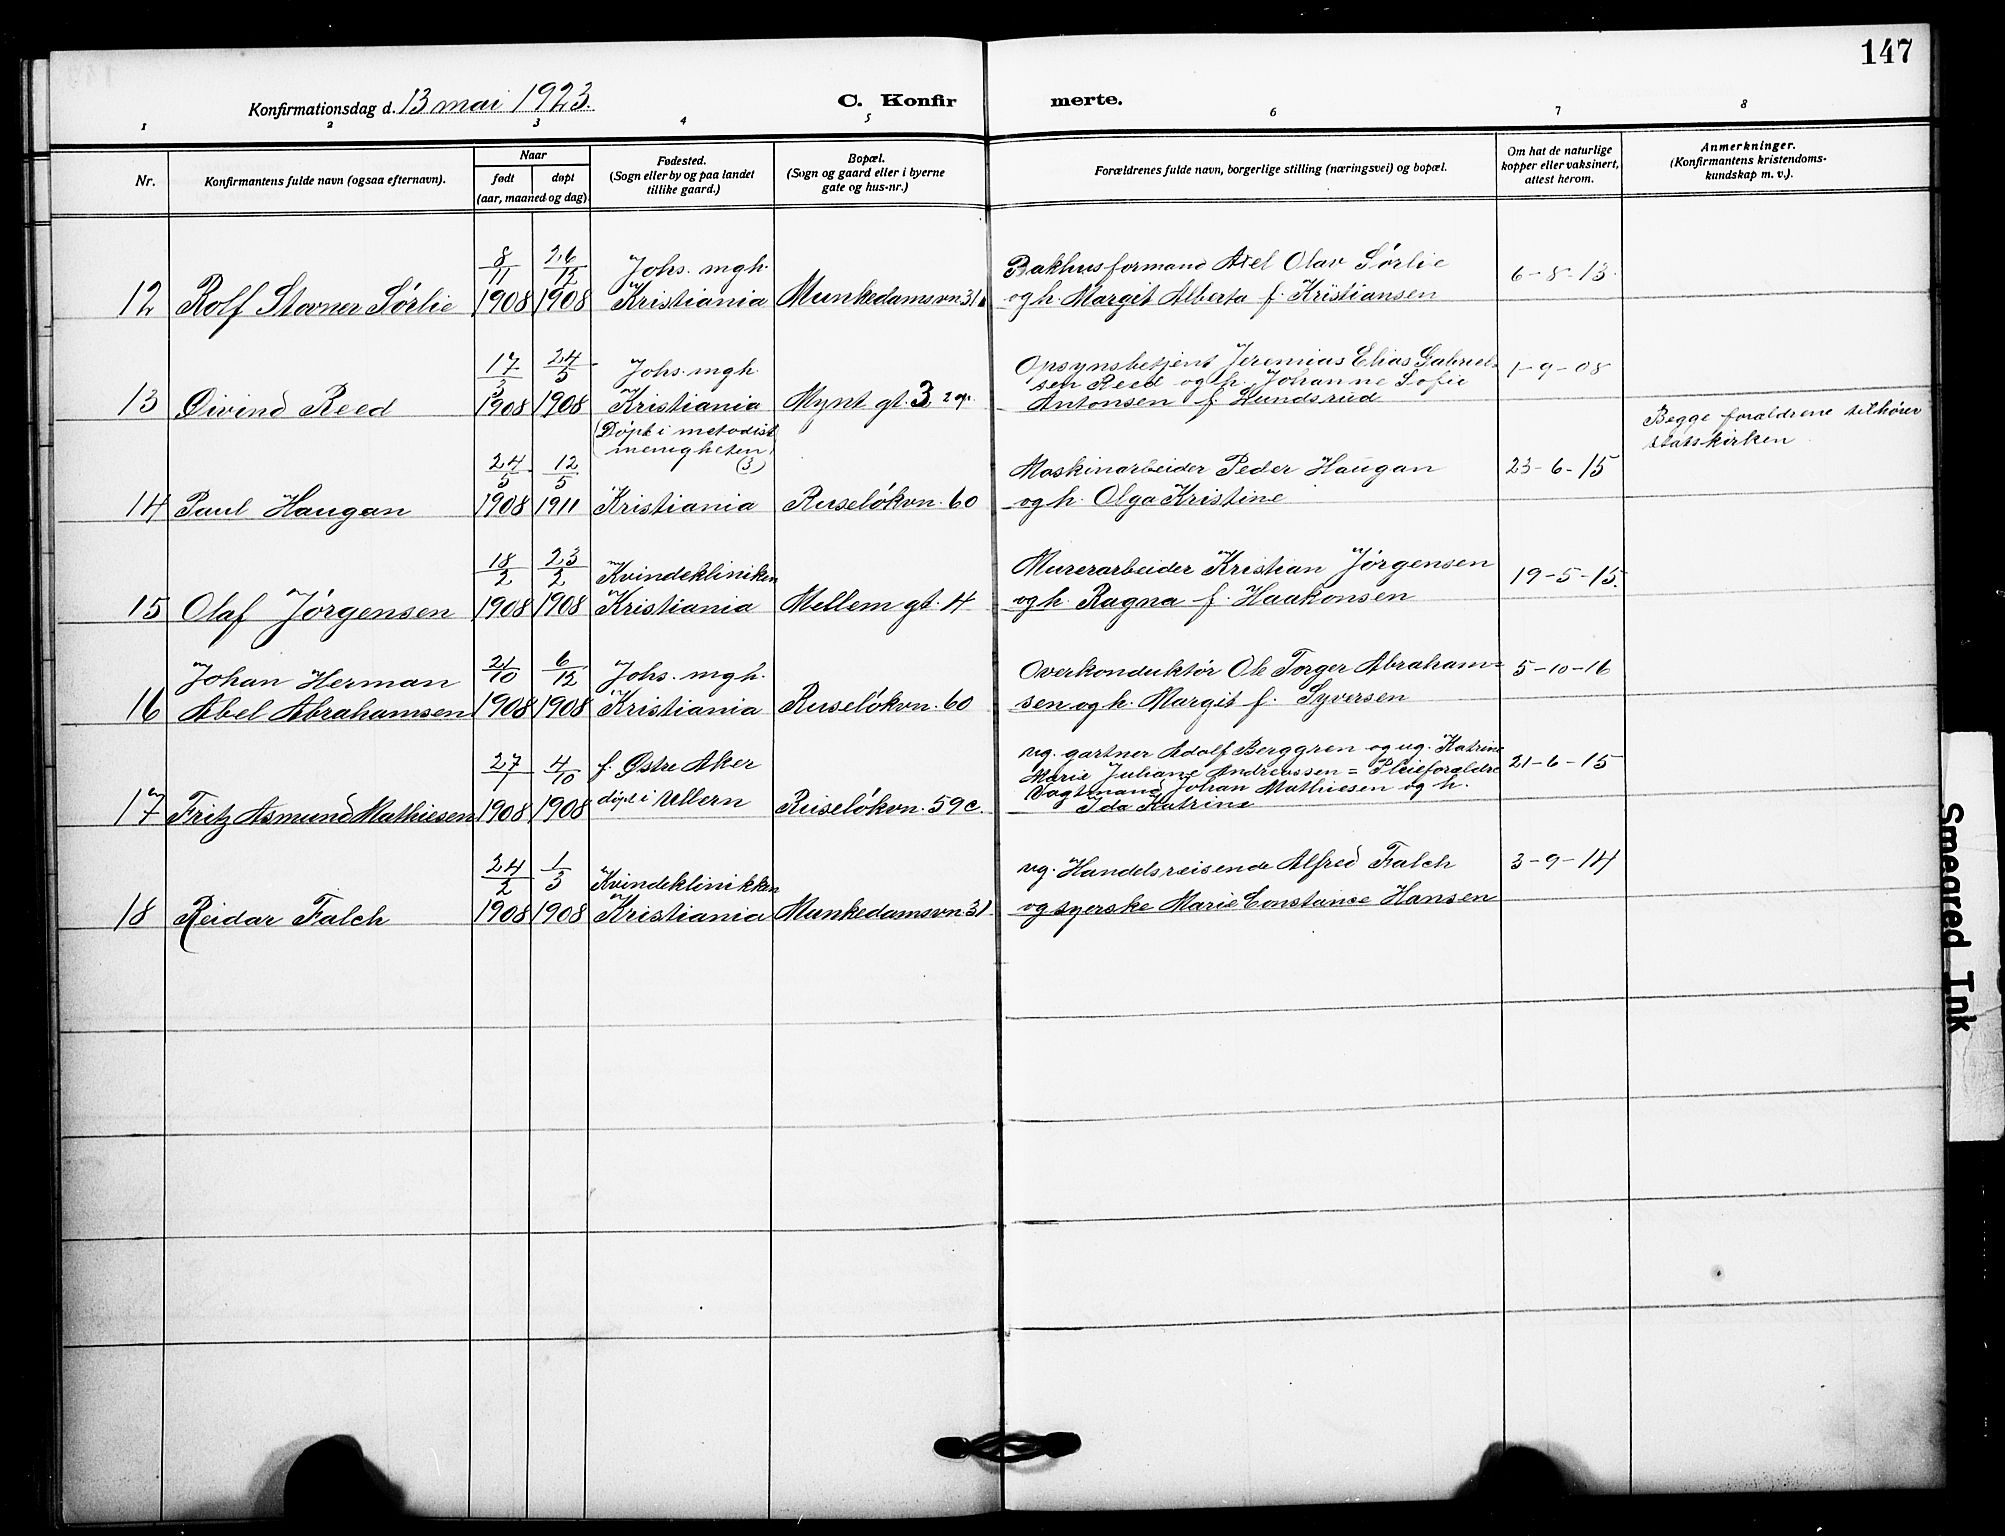 147
Konfirmationsdag d. 13 mai 1923.
C. Konfir merte.
1 2 3 4 5 6 7 8
Nr.
Konfirmantens fulde navn (ogsaa efternavn).
Naar
født døpt
(aar, maaned og dag)
Fødested.
(Sogn eller by og paa landet
tillike gaard.)
Bopæl.
(Sogn og gaard eller i byerne
gate og hus-nr.)
Forældrenes fulde navn, borgerlige stilling (næringsvei) og bopæl.
Om hat de naturlige
kopper eller vaksinert,
attest herom.
Anmerkninger.
(Konfirmantens kristendoms-
kundskap m. v.).
12 Rolf Stovner Sørlie
8/11 1908
26/12 1908
Johs. mgh.
Kristiania
Munkedamsvn. 31
Bakhusformand Axel Olav Sørlie
og h. Margit Alberta f. Kristiansen
6-8-13.
13 Øivind Reed
17/3 1908
24/5 1908
Johs. mgh.
Kristiania
Mynt gt. 3 2 op.
Opsynsbetjent Jeremias Elias Gabriel-
sen Reed og h. Johanne Sofie
Antonsen f. Lundsrud
1-9-08
14 Paul Haugan
24/5 1908
12/5 1911
(Døpt i metodist
menigheten)
(3)
Kristiania
Ruseløkvn. 60
Maskinarbeider Peder Haugan
og h. Olga Kristine
23-6-15
Begge forældrene tilhører
statskirken
15 Olaf Jørgensen
18/2 1908
23/2 1908
Kvindekliniken
Kristiania
Mellem gt. 4
Murerarbeider Kristian Jørgensen
og h. Ragna f. Haakonsen
19-5-15.
16 Johan Herman
Abel Abrahamsen
21/10 1908
6/12 1908
Johs. mgh.
Kristiania
Ruseløkvn. 60
Overkonduktør Ole Torger Abraham=
sen og h. Margit f. Syversen
5-10-16
17 Fritz Asmund Mathiesen
27/7 1908
4/10 1908
f. Østre Aker
døpt i Ullern
Ruseløkvn. 59c.
ug. gartner Adolf Berggren og ug. Katrine
Marie Juliane Andreassen = Pleieforældre
Vagtmand Johan Mathiesen og h.
Ida Katrine
21-6-15
18 Reidar Falch
24/2 1908
1/3 1908
Kvindeklinikken
Kristiania
Munkedamsvn. 31.
ug. Handelsreisende Alfred Falch
og syerske Marie Constance Hansen
3-9-14
Smeared Ink